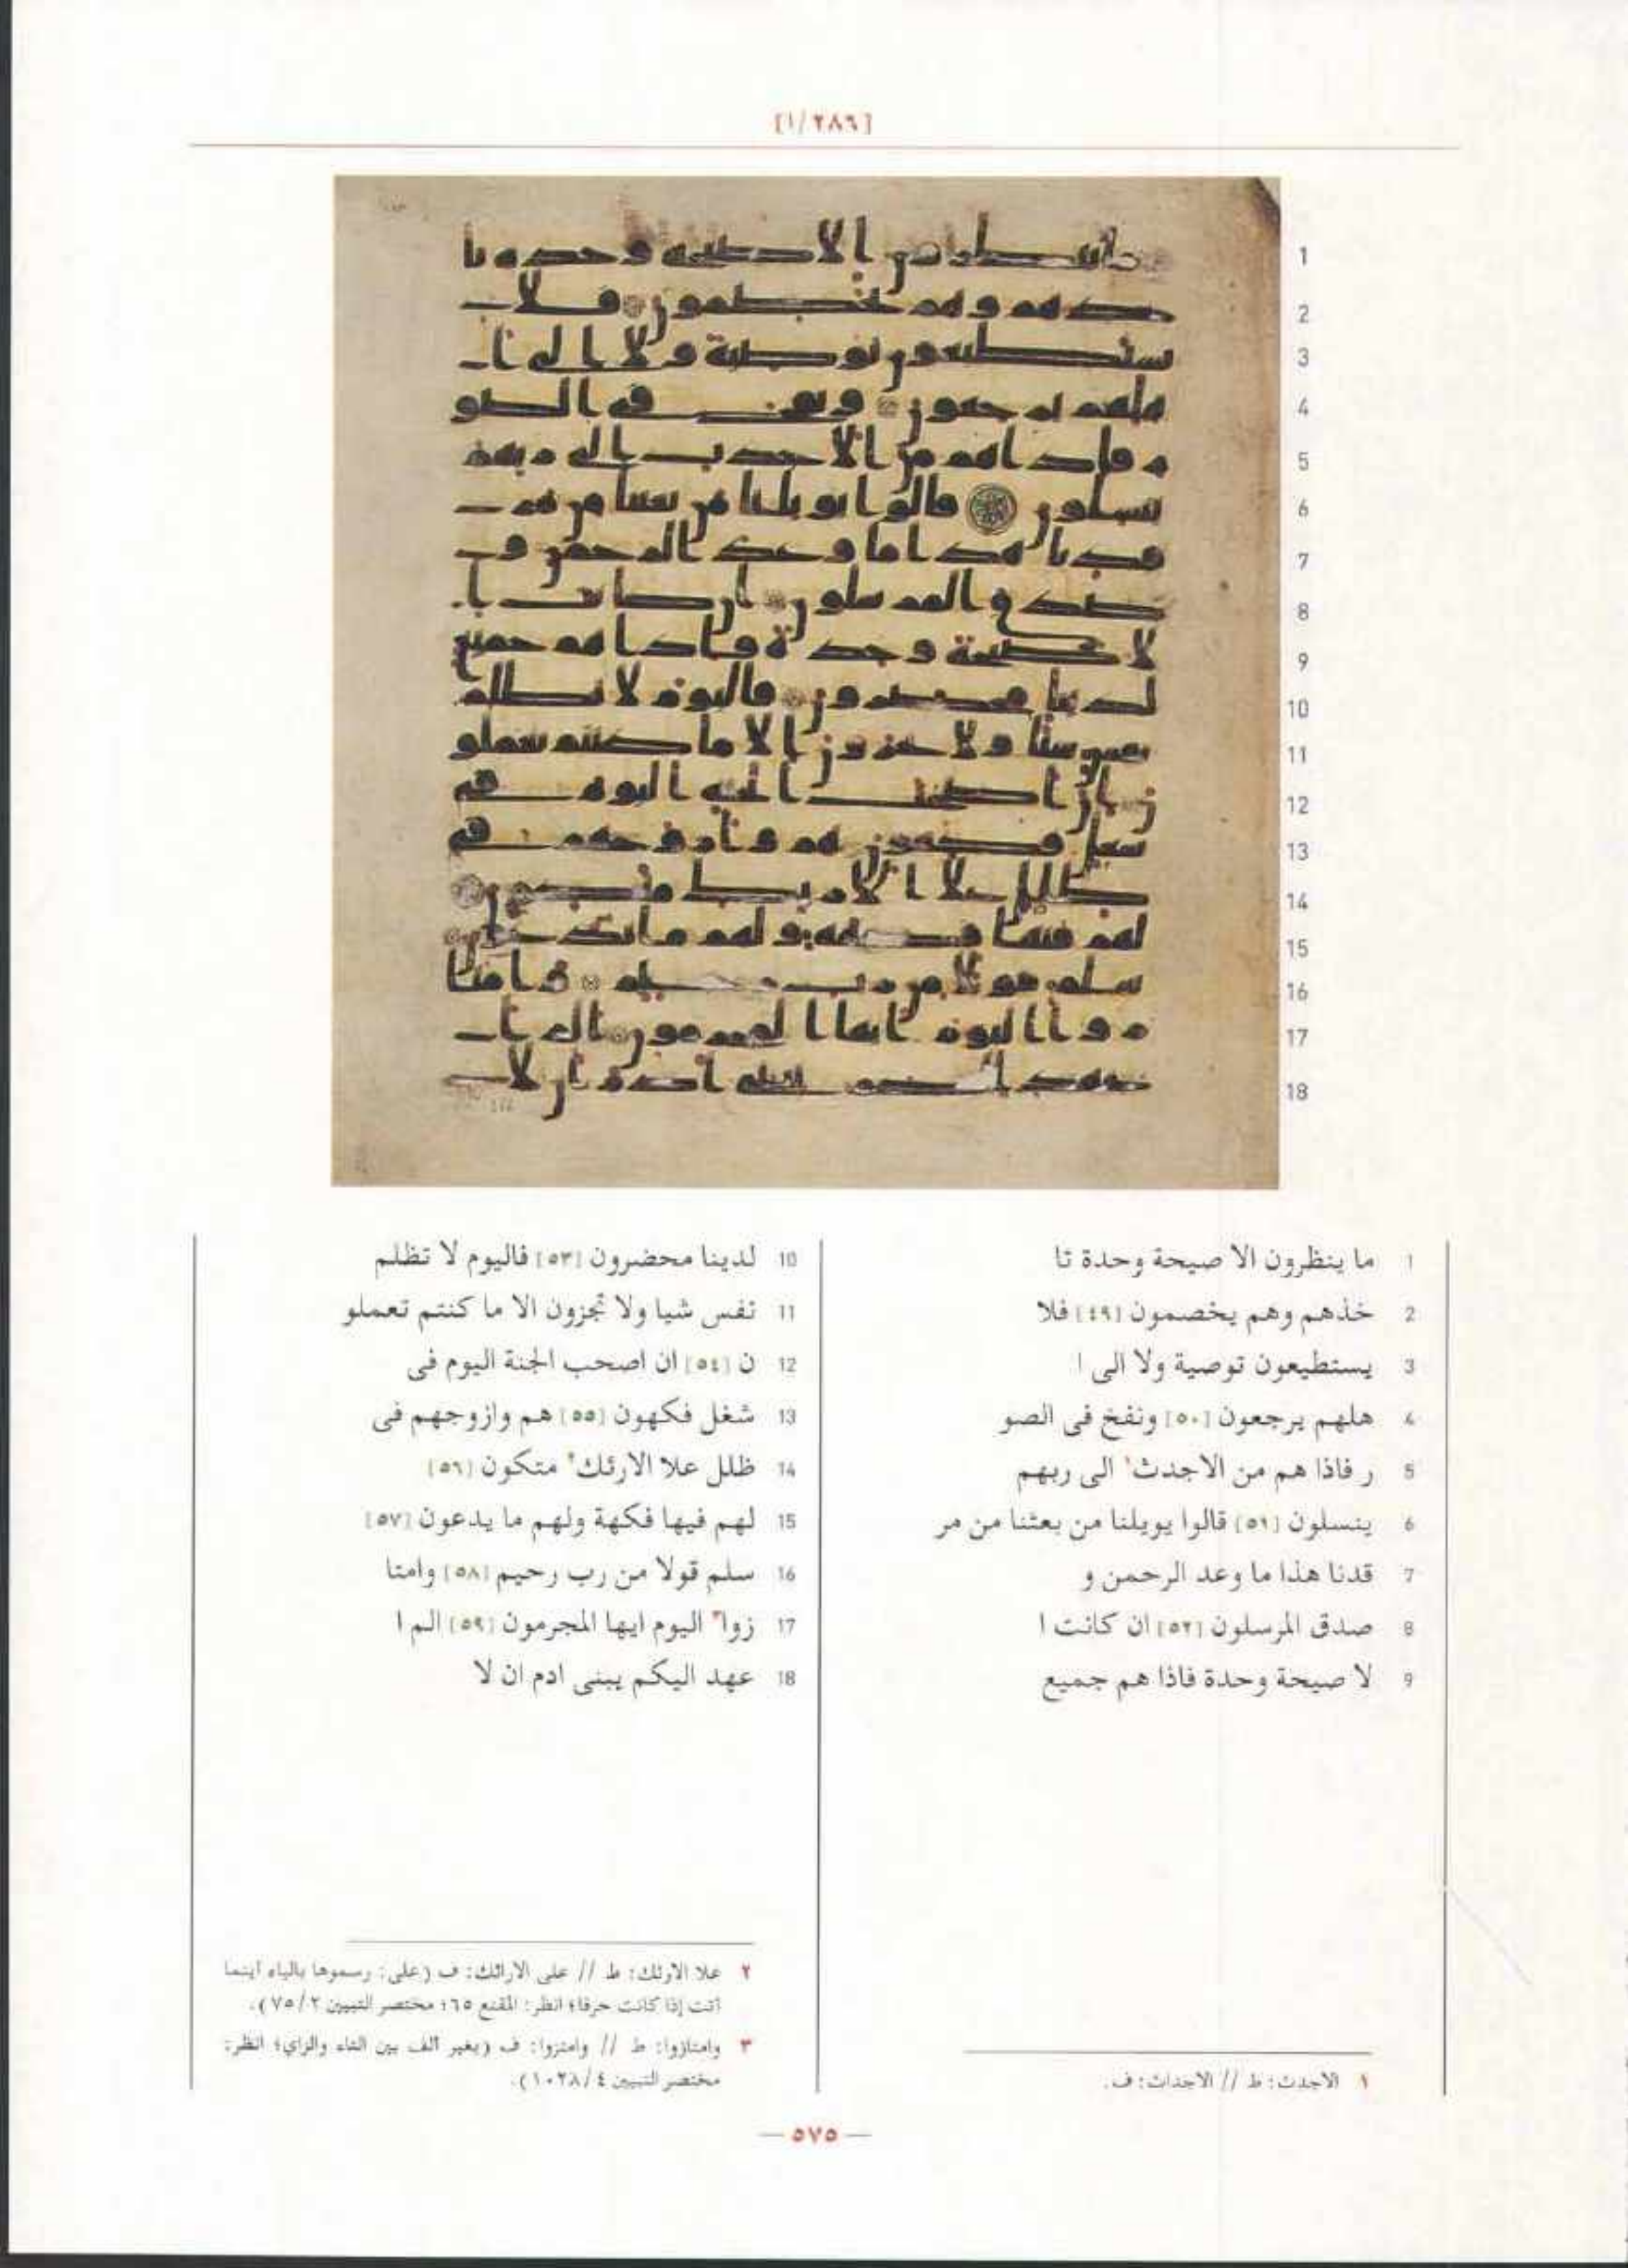 [١/٢٨٦]
1 ما ينظرون الا صيحة وحدة تا
2 خذهم وهم يخصمون [٤٩] فلا
3 يستطيعون توصية ولا الى ا
4 هلهم يرجعون [٥٠] ونفخ فى الصو
5 ر فاذا هم من الاجدث١ الى ربهم
6 ينسلون [٥١] قالوا يويلنا من بعثنا من مر
7 قدنا هذا ما وعد الرحمن و
8 صدق المرسلون [٥٢] ان كانت ا
9 لا صيحة وحدة فاذا هم جميع
١ الاجدث: ط // الاجداث: ف.
10 لدينا محضرون [٥٣] فاليوم لا تظلم
11 نفس شيا ولا تجزون الا ما كنتم تعملو
12 ن [٥٤] ان اصحب الجنة اليوم فى
13 شغل فكهون [٥٥] هم وازوجهم فى
14 ظلل علا الارئك٢ متكون [٥٦]
15 لهم فيها فكهة ولهم ما يدعون [٥٧]
16 سلم قولا من رب رحيم [٥٨] وامتا
17 زوا٣ اليوم ايها المجرمون [٥٩] الم ا
18 عهد اليكم يبنى ادم ان لا
٢ علا الارئك: ط // على الارائك: ف (على: رسموها بالياء أينما
أتت إذا كانت حرفا؛ انظر: المقنع ٦٥؛ مختصر التبيين ٧٥/٢).
٣ وامتازوا: ط // وامتزوا: ف (بغير ألف بين التاء والزاي؛ انظر:
مختصر التبيين ١٠٢٨/٤).
— ٥٧٥ —